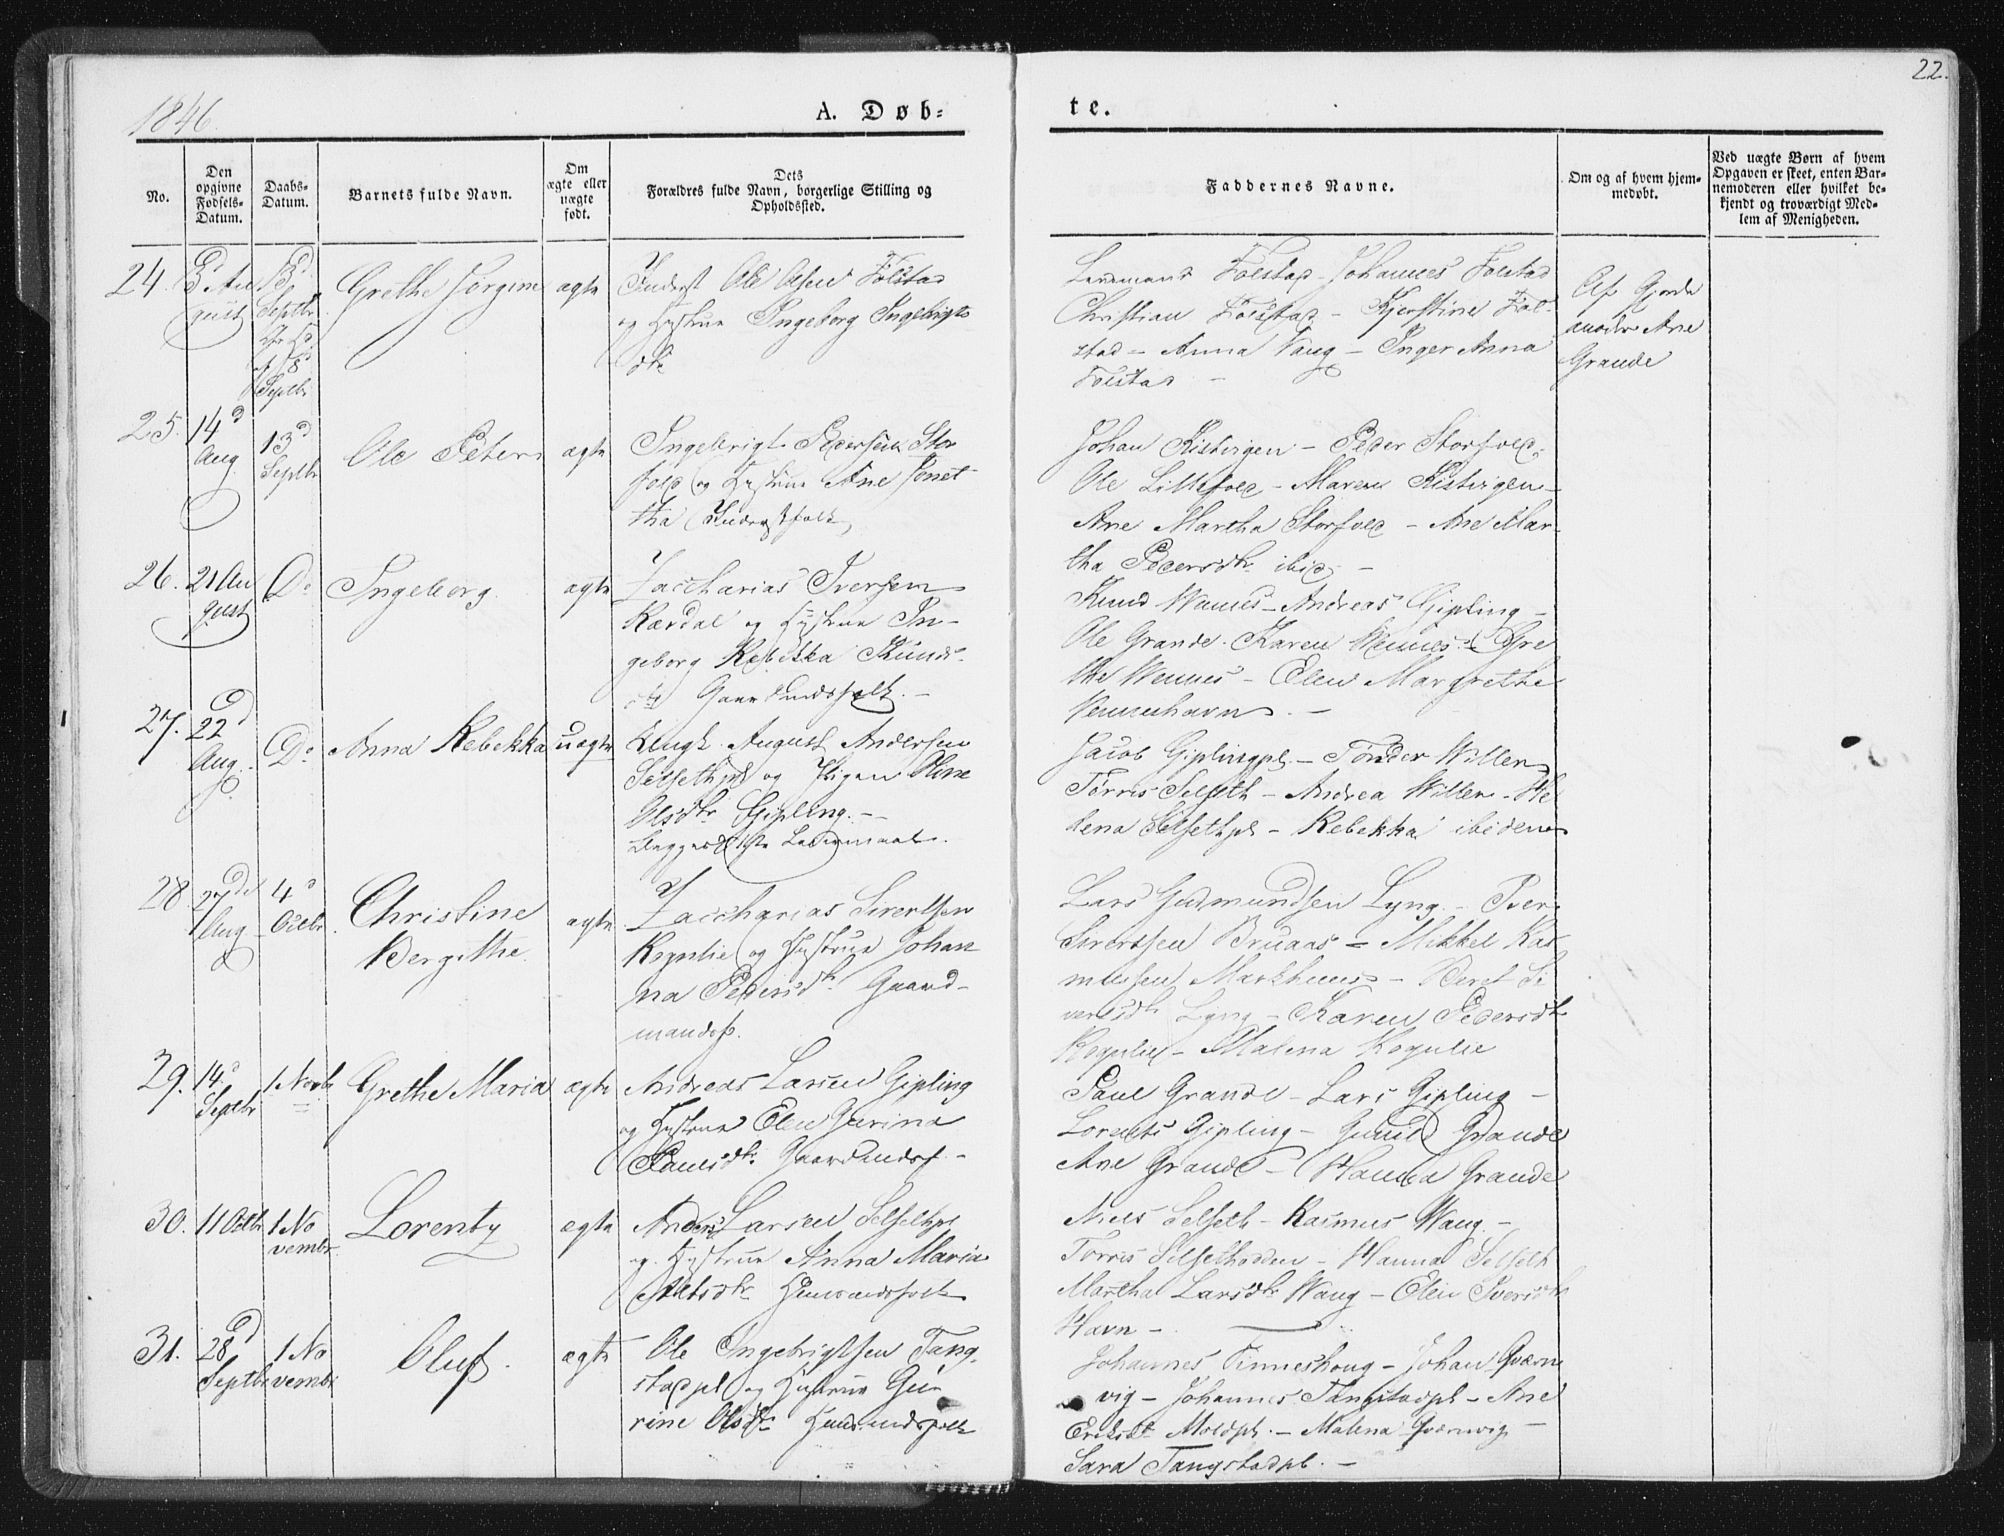 22.
1846.
A. Døb=
te.
No.
Den opgivne Fødsels-Datum.
Daabs-Datum.
Barnets fulde Navn.
Om ægte eller uægte født.
Dets Forældres fulde Navn, borgerlige Stilling og Opholdssted.
Faddernes Navne.
Om og af hvem hjemmedøbt.
Ved uægte Børn af hvem Opgaven er skeet, enten Barnemoderen eller hvilket bekjendt og troværdigt Medlem af Menigheden.
24.
Septbr
Grethe Jørgine
ægte
Inderst Ole Olsen Folstad
og Hustrue Ingeborg Ingebrigts
dtr
Folstad - Johannes Folstad
Christian Folstad - Kjerstine Fol-
stad - Anna Vang - Inger Anna
Folstad -
Af Gjorde
moder Ane
Grande
25.
14d
Aug
13d
Septbr
Ole Peter
ægte
Ingebrigt Pedersen Stor
fold og Hustrue Ane Jonet-
tha Inderstfolk
Johan Kisterigen - Peder Storfold,
Ole Littlefold - Maren Kisterigen -
Ane Martha Storfold - Ane Mar-
tha Pedersdtr ibid. -
26.
21 Au
gust
Do
Ingeborg.
ægte
Zaccharias Iversen
Rærdal og Hustrue In-
geborg Rebekka Knuds-
dtr Gaardmandsfolk. -
Knud Wennes - Andreas Gipling -
Ole Grande. Karen Wennes - Gre
the Wennes - Elen Margrethe
Vennehavn. -
27.
22d
Aug.
Do
Anna Rebekka
uægte
Ungk. August Andersen
Selsethpl og Pigen Oline
Olsdtr Gipling. -
Begges 1ste Leiermaal.
Jacob Giplingpl. - Tønder Willen
Tørris Selseth - Andrea Willen - He
lena Selsethpl - Rebekka ibidem
28
27de
Aug
4d
Octbr
Christine
Bergithe.
ægte
Zaccharias Sivertsen
Rognlie og Hustrue Johan
na Pedersdtr Gaard-
mandsf.
Lars Gudmundsen Lyng. - Peer
Sivertsen Bruaas - Mikkel Ras
mussen Markhuus - Beret Si
vertsdtr Lyng - Karen Pedersdtr
Rognlie - Malena Rognlie
29.
14d
Septbr
1 Novbr
Grethe Maria
ægte
Andreas Larsen Gipling
og Hustrue Elen Gurina
Paulsdtr Gaardmandsf. -
Paul Grande - Lars Gipling -
Lorents Gipling - Gunild Grande
Ane Grande - Hanna Grande
30.
11 Octbr
1 No
vembr.
Lorents
ægte
Anders Larsen Selsethpl
og Hustrue Anna Maria
Husmandsfolk
Niels Selseth - Rasmus Wang. -
Tørris Selsethodden - Hanna Selseth
Martha Larsdtr Wang - Elen Iversdtr
Havn -
31.
28d
Septbr
1 No
vembr
Oluf.
ægte
Ole Ingebrigtsen Tang-
stadpl og Hustrue Gu-
rine Olsdtr Husmandsfolk
Johannes Finneshoug - Johan Qværn
vig - Johannes Tangstadpl - Ane
Eriksdtr Moldpl. - Malena Qværnvig -
Sara Tangstadpl. -